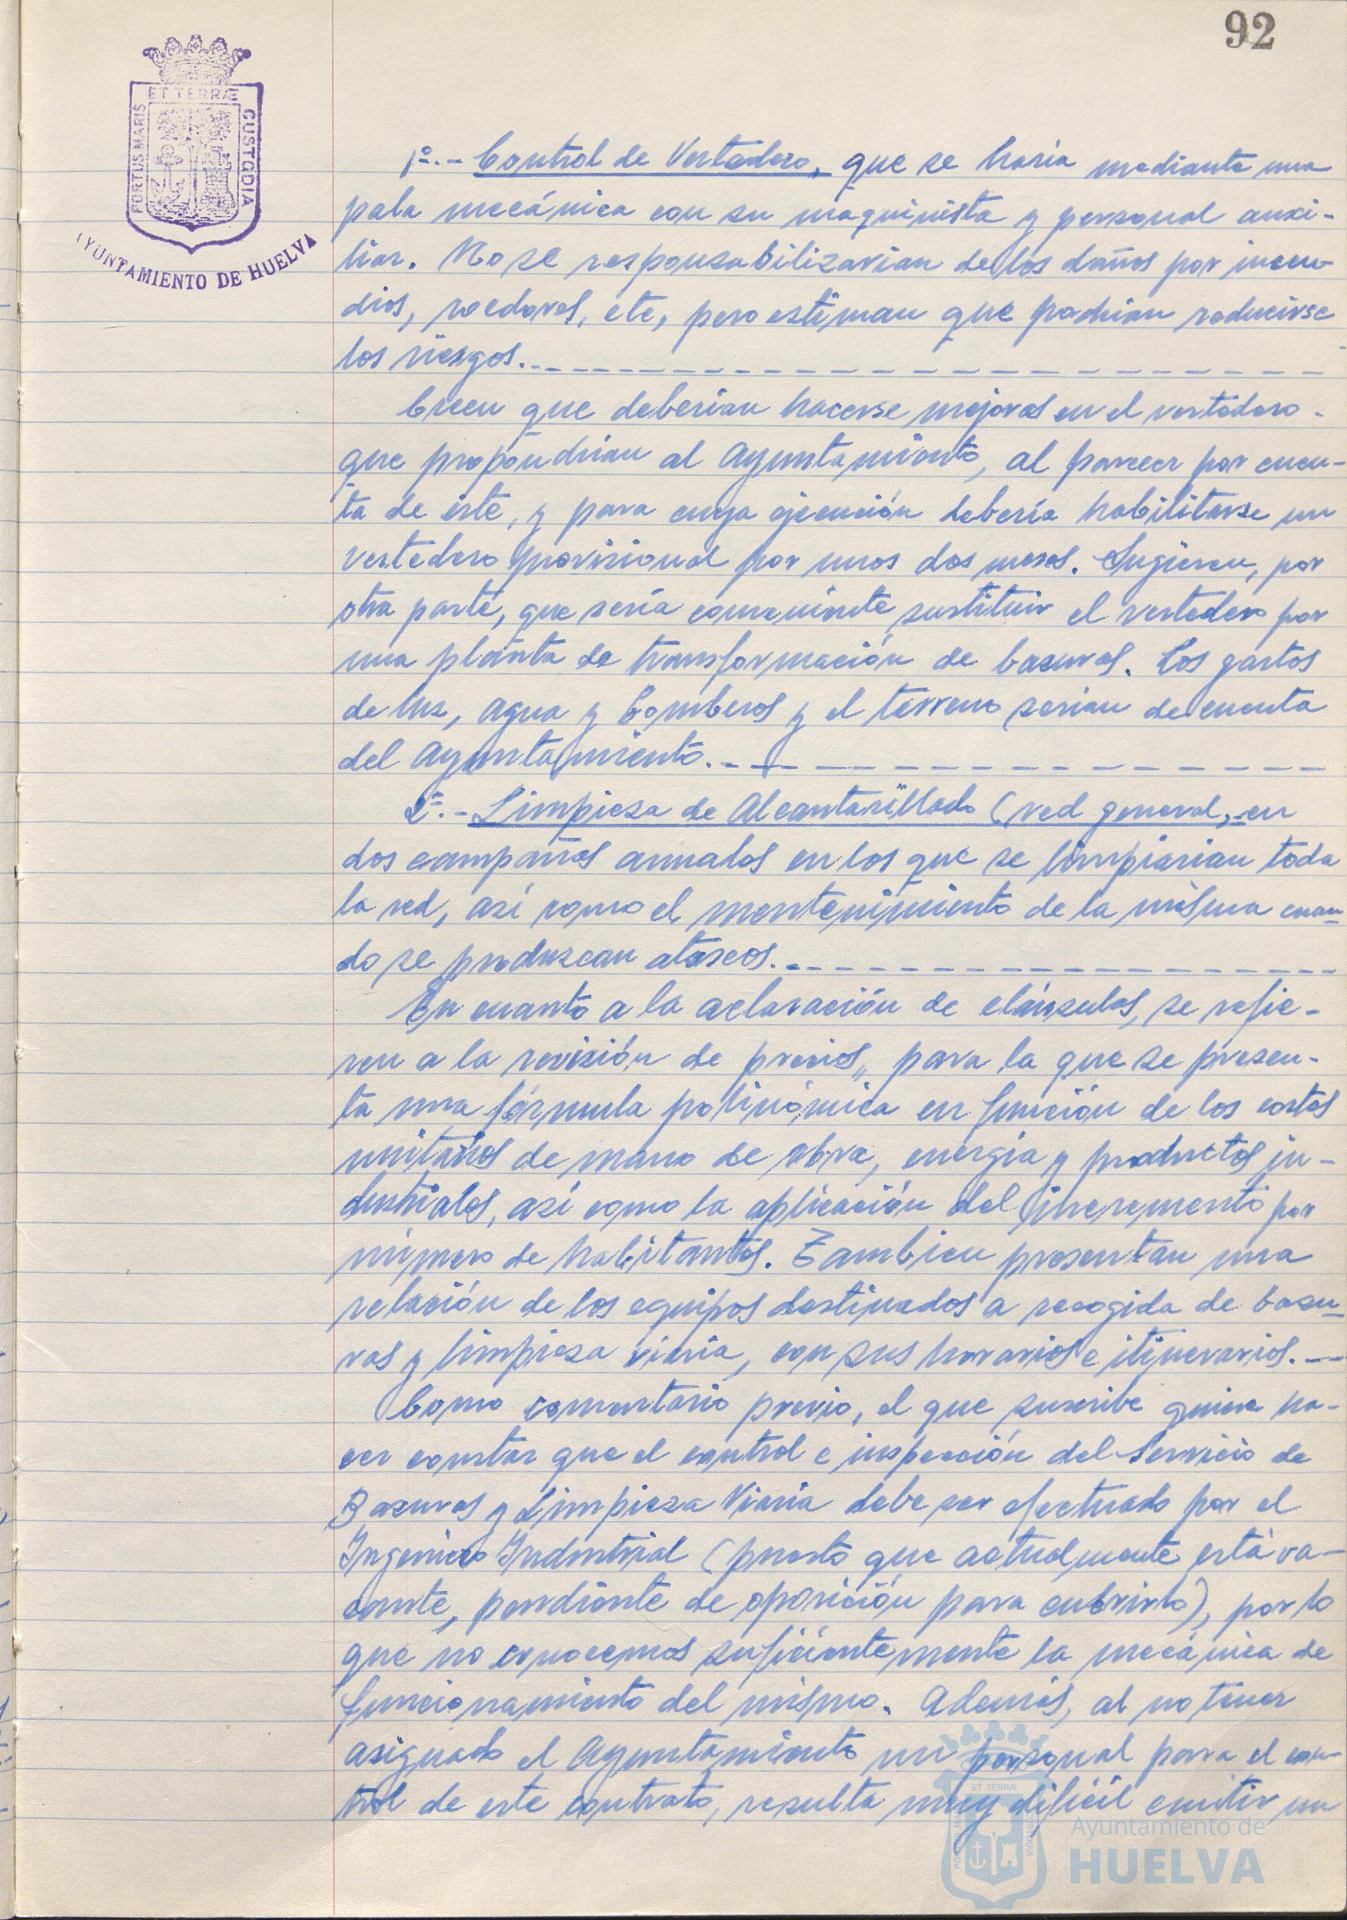 92
ET TERRÆ
PORTUS MARIS
CUSTODIA
AYUNTAMIENTO DE HUELVA
1º.- Control de Vertedero, que se haria mediante una
pala mecánica con su maquinista y personal auxi-
liar. No se responsabilizarian de los daños por incen-
dios, roedores, etc, pero estiman que podrian reducirse
los riesgos.
Creen que deberian hacerse mejoras en el vertedero
que propondrian al Ayuntamiento, al parecer por cuen-
ta de éste, y para cuya ejecución debería habilitarse un
vertedero provisional por unos dos meses. Sugieren, por
otra parte, que sería conveniente sustituir el vertedero por
una planta de transformación de basuras. Los gastos
de luz, agua y bomberos y el terreno serian de cuenta
del Ayuntamiento.
2º.- Limpieza de Alcantarillado (red general,- en
dos campañas anuales en los que se limpiarian toda
la red, así como el mantenimiento de la misma cuan-
do se produzcan atascos.
En cuanto a la aclaración de cláusulas, se refie-
ren a la revisión de precios, para la que se presen-
ta una fórmula polinómica en función de los costos
unitarios de mano de obra, energia y productos in-
dustriales, así como la aplicación del incremento por
número de habitantes. Tambien presentan una
relación de los equipos destinados a recogida de basu-
ras y limpieza viaria, con sus horarios e itinerarios.
Como comentario previo, el que suscribe quiere ha-
cer constar que el control e inspección del Servicio de
Basuras y Limpieza Viaria debe ser efectuado por el
Ingeniero Industrial (puesto que actualmente está va-
cante, pendiente de oposición para cubrirlo), por lo
que no conocemos suficientemente la mecánica de
funcionamiento del mismo. Además, al no tener
asignado el Ayuntamiento un personal para el con-
trol de este contrato, resulta muy dificil emitir un
ET TERRÆ
Ayuntamiento de
HUELVA